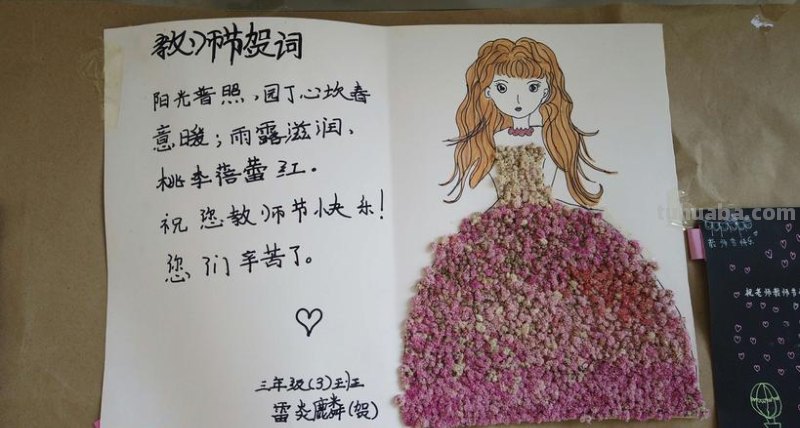 教师节贺词
阳光普照，园丁心坎春
意暖；雨露滋润，
桃李蓓蕾红．
祝您教师节快乐！
您们辛苦了。
三年级(3)班
雷炎麟(贺)
tuhuaba.com
老师您快乐
祝老师教师节